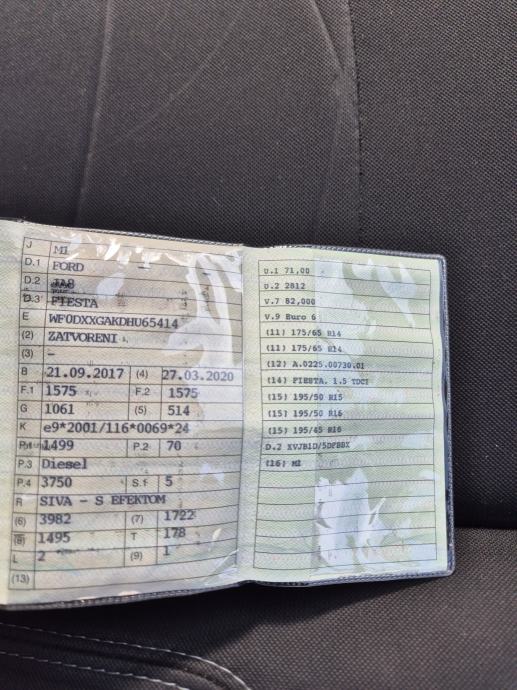 J M1
D.1 FORD
D.2 JA8
D.3 FIESTA
E WF0DXXGAKDHU65414
(2) ZATVORENI
(3) -
B 21.09.2017 (4) 27.03.2020
F.1 1575 F.2 1575
G 1061 (5) 514
K e9*2001/116*0069*24
P.1 1499 P.2 70
P.3 Diesel
P.4 3750 S.1 5
R SIVA - S EFEKTOM
(6) 3982 (7) 1722
(8) 1495 T 178
L 2 (9) 1
(13)
U.1 71,00
U.2 2812
V.7 82,000
V.9 Euro 6
(11) 175/65 R14
(11) 175/65 R14
(12) A.0225.00730.01
(14) FIESTA, 1.5 TDCI
(15) 195/50 R15
(15) 195/50 R16
(15) 195/45 R16
D.2 XVJB1D/5DFBBX
(16) MI